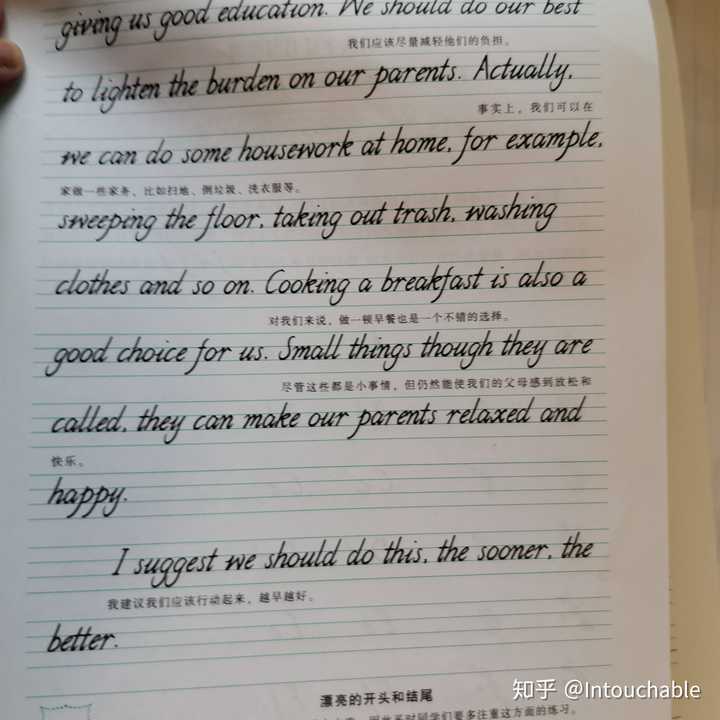 giving us good education. We should do our best
我们应该尽量减轻他们的负担。
to lighten the burden on our parents. Actually,
事实上，我们可以在
we can do some housework at home, for example,
家做一些家务，比如扫地、倒垃圾、洗衣服等。
sweeping the floor, taking out trash, washing
clothes and so on. Cooking a breakfast is also a
对我们来说，做一顿早餐也是一个不错的选择。
good choice for us. Small things though they are
尽管这些都是小事情，但仍然能使我们的父母感到放松和
called, they can make our parents relaxed and
快乐。
happy.
I suggest we should do this, the sooner, the
我建议我们应该行动起来，越早越好。
better.
漂亮的开头和结尾
同学们要多注重这方面的练习。
知乎 @Intouchable